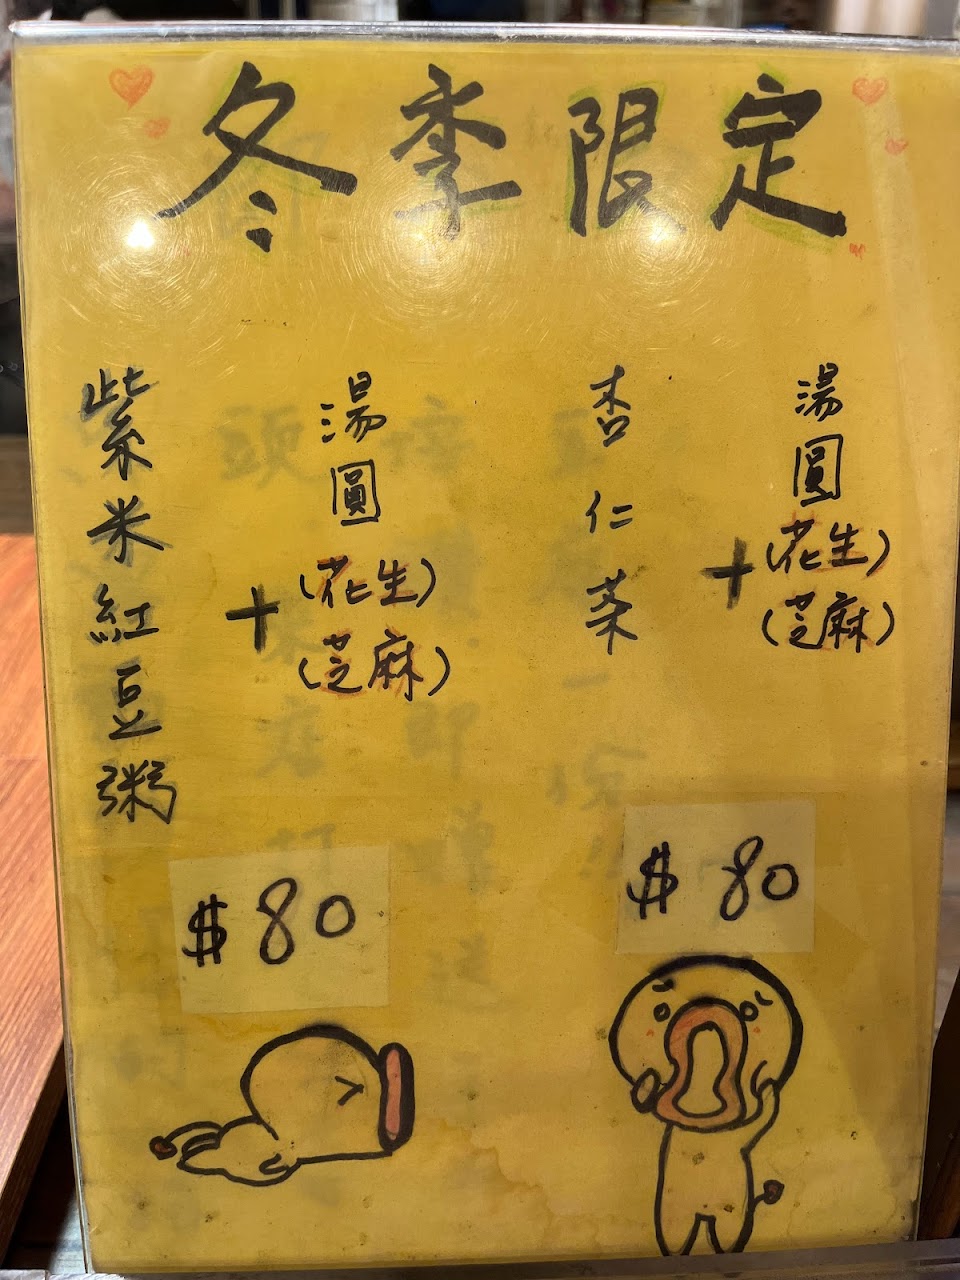 冬季限定
紫米紅豆粥
+
湯圓
(花生)
(芝麻)
$80
杏仁茶
+
湯圓
(花生)
(芝麻)
$80